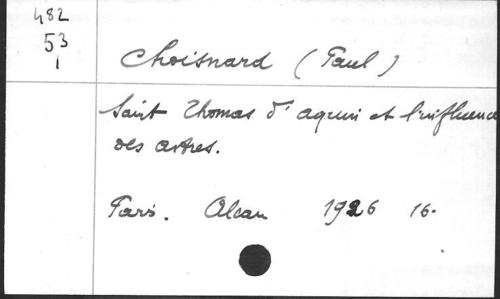 482
53
1
Choisnard (Paul)
Saint Thomas d'Aquin et l'influence
des astres.
Paris. Alcan 1926 16.